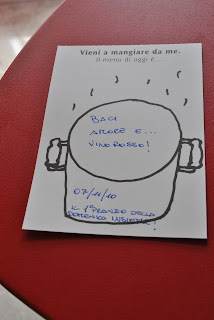 Vieni a mangiare da me.
il menu di oggi è...
BACI
AMORE E...
VINO ROSSO!
07/11/10
IL 1° PRANZO DELLA
DOMENICA INSIEME!